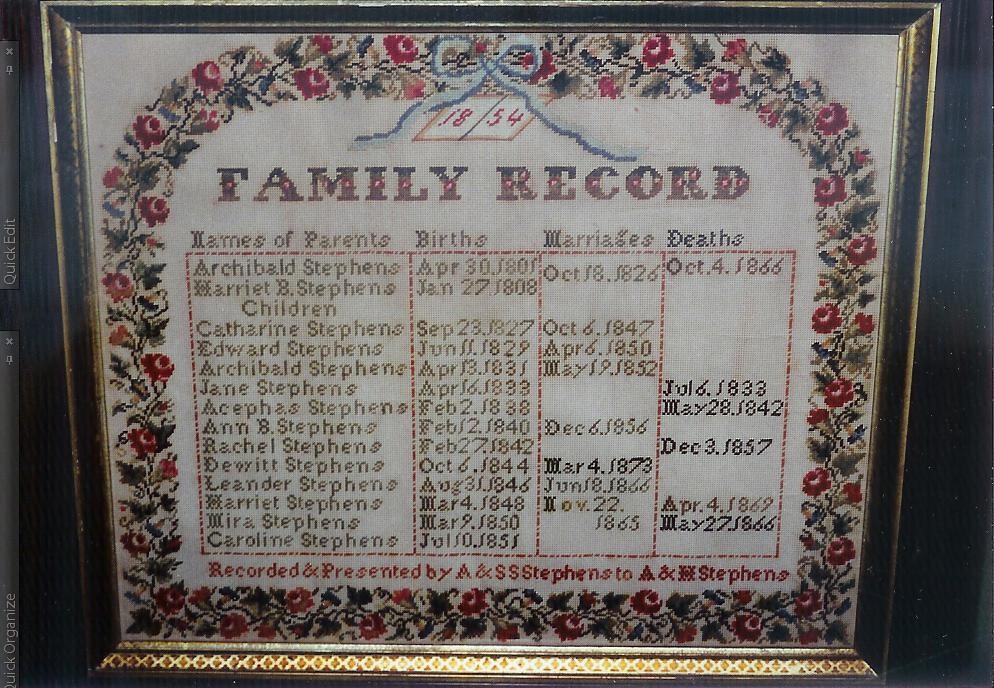 18/54
FAMILY RECORD
Names of Parents Births Marriages Deaths
Archibald Stephens Apr 30.1801 Oct 18.1826 Oct.4.1866
Harriet B.Stephens Jan 27.1808
Children
Catharine Stephens Sep 23.1827 Oct 6.1847
Edward Stephens Jun 11.1829 Apr 6.1850
Archibald Stephens Apr 13.1831 May 19.1852
Jane Stephens Apr 16.1833 Jul 6.1833
Acephas Stephens Feb 2.1838 May 28.1842
Ann B.Stephens Feb 12.1840 Dec 6.1856
Rachel Stephens Feb 27.1842 Dec 3.1857
Dewitt Stephens Oct 6.1844 Mar 4.1873
Leander Stephens Aug 31.1846 Jun 18.1866
Harriet Stephens Mar 4.1848 Nov.22. Apr.4.1869
Mira Stephens Mar 9.1850 1865 May 27.1866
Caroline Stephens Jul 10.1851
Recorded & Presented by A & S S Stephens to A & H Stephens
Quick Edit
Quick Organize